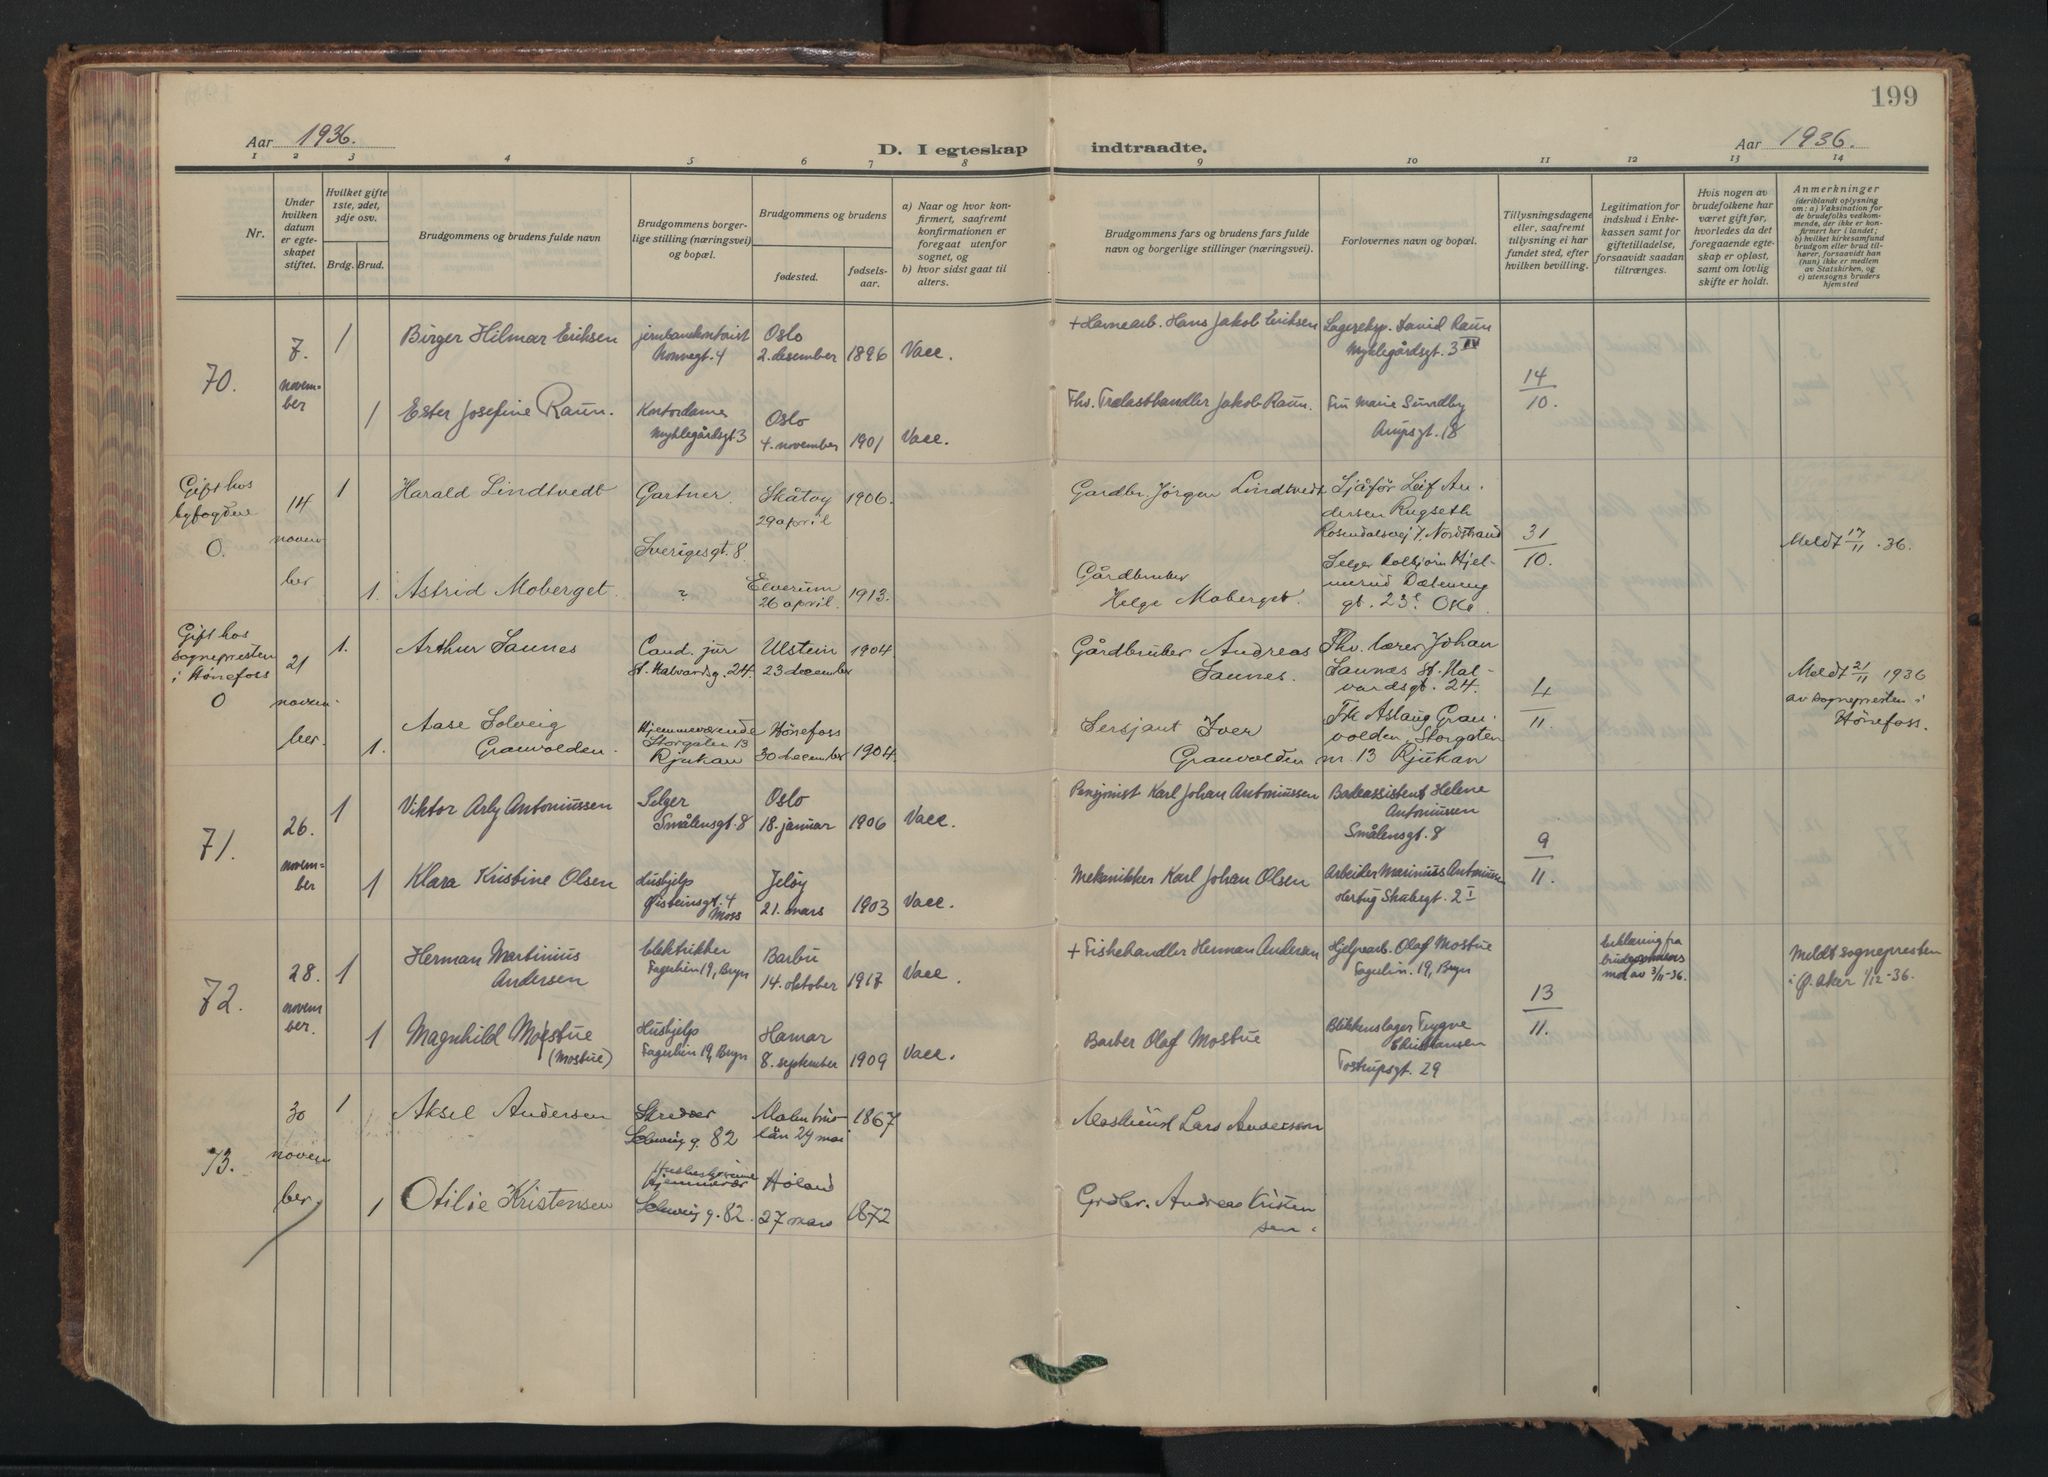 199
Aar 1936.
D. I egteskap indtraadte.
Aar 1936.
1 2 3 4 5 6 7 8 9 10 11 12 13 14
Nr.
Under hvilken datum er egteskapet stiftet.
Hvilket gifte 1ste, 2det, 3dje osv.
Brdg. Brud.
Brudgommens og brudens fulde navn
Brudgommens borgerlige stilling (næringsvei) og bopæl.
Brudgommens og brudens
fødested.
fødselsaar.
a) Naar og hvor konfirmert, saafremt konfirmationen er foregaat utenfor sognet, og
b) hvor sidst gaat til alters.
Brudgommens fars og brudens fars fulde navn og borgerlige stillinger (næringsvei).
Forlovernes navn og bopæl.
Tillysningsdagene eller, saafremt tillysning ei har fundet sted, efter hvilken bevilling.
Legitimation for indskud i Enkekassen samt for giftetilladelse, forsaavidt saadan tiltrænges.
Hvis nogen av brudefolkene har været gift før, hvorledes da det foregaaende egteskap er opløst, samt om lovlig skifte er holdt.
Anmerkninger
(deriblandt oplysning om: a) Vaksination for de brudefolks vedkommende, der ikke er konfirmert her i landet; b) hvilket kirkesamfund brudgom eller brud tilhører, forsaavidt han (hun) ikke er medlem av Statskirken, og c) utensogns bruders hjemsted
70.
7. november
1
Birger Hilmar Eriksen
jernbanekontorist
Nonnegt. 4
Oslo
2. desember 1896
Vacc.
+ Havnearb. Hans Jakob Eriksen
Lagereksp. David Raun
Myhlegårdsgt. 3 IV
14
10.
1
Ester Josefine Raun.
Kontordame
Myhlegårdsgt 3
Oslo
4. november 1901
Vacc.
Fhv. Trelasthandler Jakob Raun.
Fru Marie Sundby
Arupsgt. 18
Gift hos
byfogden
0.
14
novem
ber
1
Harald Lindtvedt
Gartner.
Sverigesgt. 8
Skåtøy
29 april
1906.
Gardbr. Jörgen Lindtvedt
Sjåfør Leif An.
dersen Rugseth
Rosendalsvej 7. Nordstrand
31
10.
Meldt 17/11 . 36.
1.
Astrid Moberget.
?
Elverum
26 april.
1913.
Gårdbruker
Helge Moberget.
Selger Kolbjörn Hjel-
merud Dælenenggt. 23 Oslo.
Gift hos
sognepresten
i Hönefoss
0
21
novem-
ber.
1.
Arthur Saunes
Cand. jur
St. Halvardsg. 24.
Ulstein
23 december
1904.
Gårdbruker Andreas
Saunes.
Fhv. lærer Johan
Saunes St. Hal-
vardsgt. 24.
4
11.
Meldt 21/11 1936
av sognepresten i
Hönefoss.
1.
Aase Solveig
Granvolden.
Hjemmeværende
Storgaten 13
Rjukan
Hönefoss
30 december
1904.
Sersjant Iver
Granvolden
Frk Aslaug Gran-
volden, Storgaten
nr. 13 Rjukan
71.
26.
november
1
Viktor Arly Antoniussen
Selger
Smålensgt. 8
Oslo
18. januar 1906
Vacc.
Pensjonist Karl Johan Antoniussen
Badeassistent Helene
Antoniussen
Smålensgt. 8
9
11.
1
Klara Kristine Olsen
Hushjelp
Østeinsgt. 4
Moss
Jeløy
21. mars 1903
Vacc.
Mekanikker Karl Johan Olsen
Arbeider Marinius Antoniussen
Hertug Skulesgt. 2 I
72.
28.
november.
1
Herman Martinius
Andersen
Elektrikker
Fagerlin 19, Bryn
Barbu
14. oktober 1917
Vacc.
+ Fiskehandler Herman Andersen
Hjelpearb. Olaf Mostue
Fagerlin. 19, Bryn
13
11.
Erklæring fra
brudgommens
mor av 3/11-36.
Meldt sognepresten
i Ø. Aker 1/12-36.
1
Magnhild Mostue
(Mostue)
Hushjelp
Fagerlin 19, Bryn
Hamar
8. september 1909
Vacc.
Barber Olaf Mostue
Blikkenslager Trygve
Christiansen
Tostrupsgt. 29
73.
30
novem
ber.
1
Aksel Andersen
Skredder
Schwing g. 82
Malmöhus
län 29 mai
1867
Maskinist Lars Anderson
1
Otilie Kristensen
Husbestyrerinne
Hjemmevær
Schwing g. 82.
Høland
27 mars
1872
Grdbr. Andreas Kristen
sen.